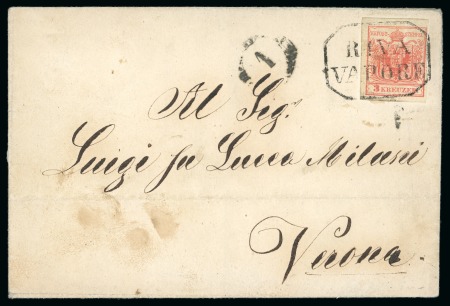 1
RIVA
VAPORE
3 KREUZER
Al Sig.
Luigi fu Lucca Milani
Verona.